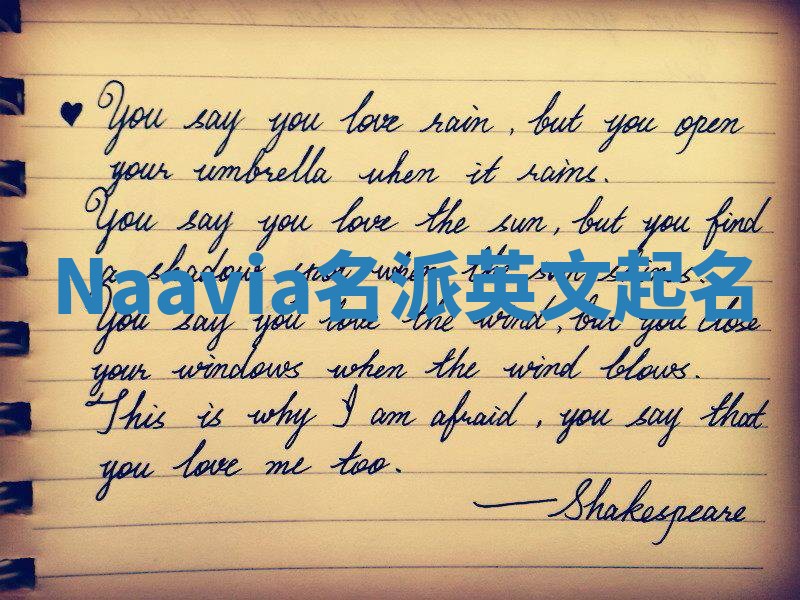 ♥ You say you love rain, but you open
your umbrella when it rains.
You say you love the sun, but you find
a shadow spot when the sun shines.
Naavia名派英文起名
You say you love the wind, but you close
your windows when the wind blows.
This is why I am afraid, you say that
you love me too.
—Shakespeare